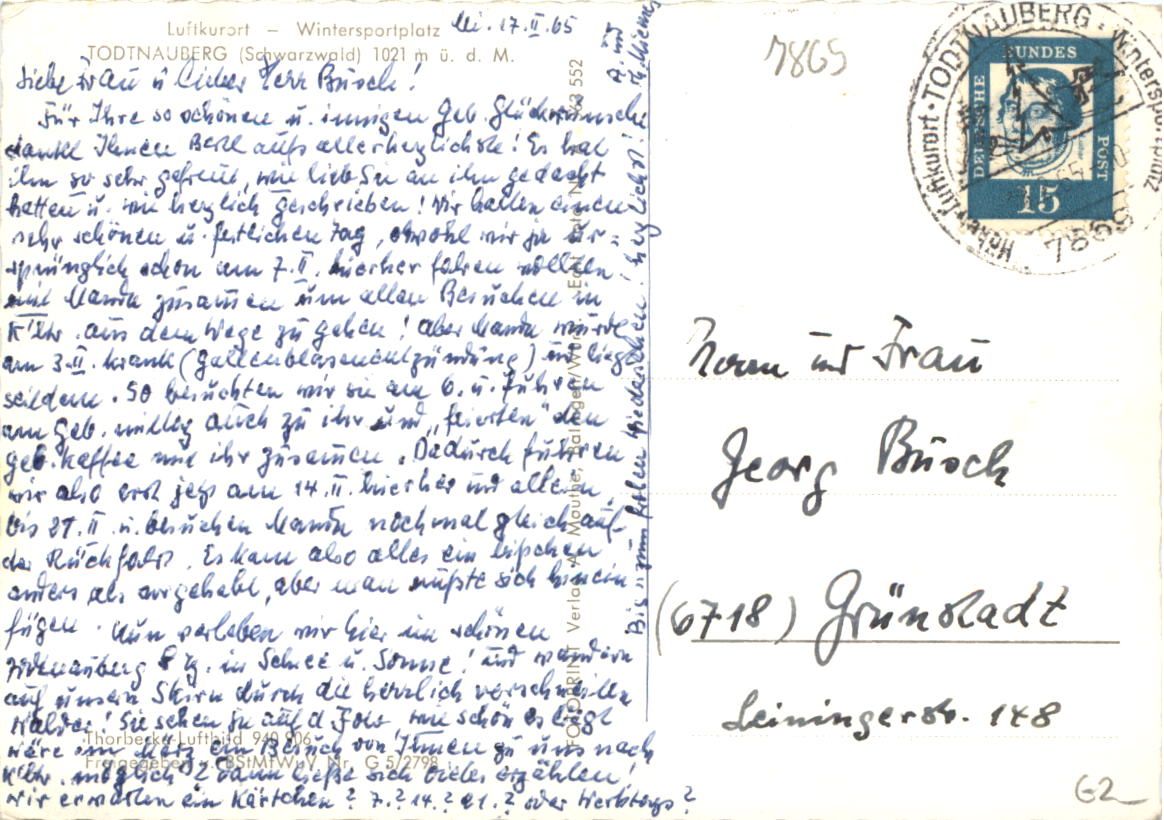 Luftkurort – Wintersportplatz
TODTNAUBERG (Schwarzwald) 1021 m ü. d. M.
17.II.65
Liebe Frau u lieber Herr Busch!
Für Ihre so schönen u. innigen Geb. Glückwünsche
dankt Ihnen aufs allerherzlichste! Es hat
ihn so sehr gefreut, wie lieb Sie an ihn gedacht
hatten u. wie herzlich geschrieben! Wir hatten einen
sehr schönen u. festlichen Tag, obwohl wir ja ur-
sprünglich schon am 7.II. hierher fahren wollten
mit Mama zusammen um allen Besuchen in
K'lhr. aus dem Wege zu gehen! Aber Mama wurde
am 3.II. krank (Gallenblasenentzündung) und liegt
seitdem. So besuchten wir sie am 6. u. fuhren
am Geb. mittag auch zu ihr und „feierten" den
Geb. Kaffee mit ihr zusammen. Dadurch fuhren
wir also erst jetzt am 14.II. hierher und allein,
bis 21.II u. besuchen Mama nochmal gleich auf
der Rückfahrt. Es kam also alles ein bißchen
anders als vorgehabt, aber man mußte sich hinein
fügen. Nun verleben wir hier im schönen
Todtnauberg 8 Tg. in Schnee u. Sonne! und wandern
auf unsern Skiern durch die herrlich verschneiten
Wälder! Sie sehen ja auf d Foto, wie schön es liegt
wäre im März ein Besuch von Ihnen zu uns nach
K'lhr. möglich? Dann ließe sich vieles erzählen!
wir erwarten ein Kärtchen? 7.? 14.? 21.? oder Werktags?
Bis zum frohen Wiedersehen! herzlichst!
Thorbecke-Luftbild 940 906
Freigegeben v. BStMfWuV Nr. G 5/2798
FOTOPRINT Verlag A. Mauthe,
552
7865
DEUTSCHE BUNDES POST
15
TODTNAUBERG · Wintersportplatz
Luftkurort
7865
Herrn und Frau
Georg Busch
(6718) Grünstadt
Leiningerstr. 148
G2